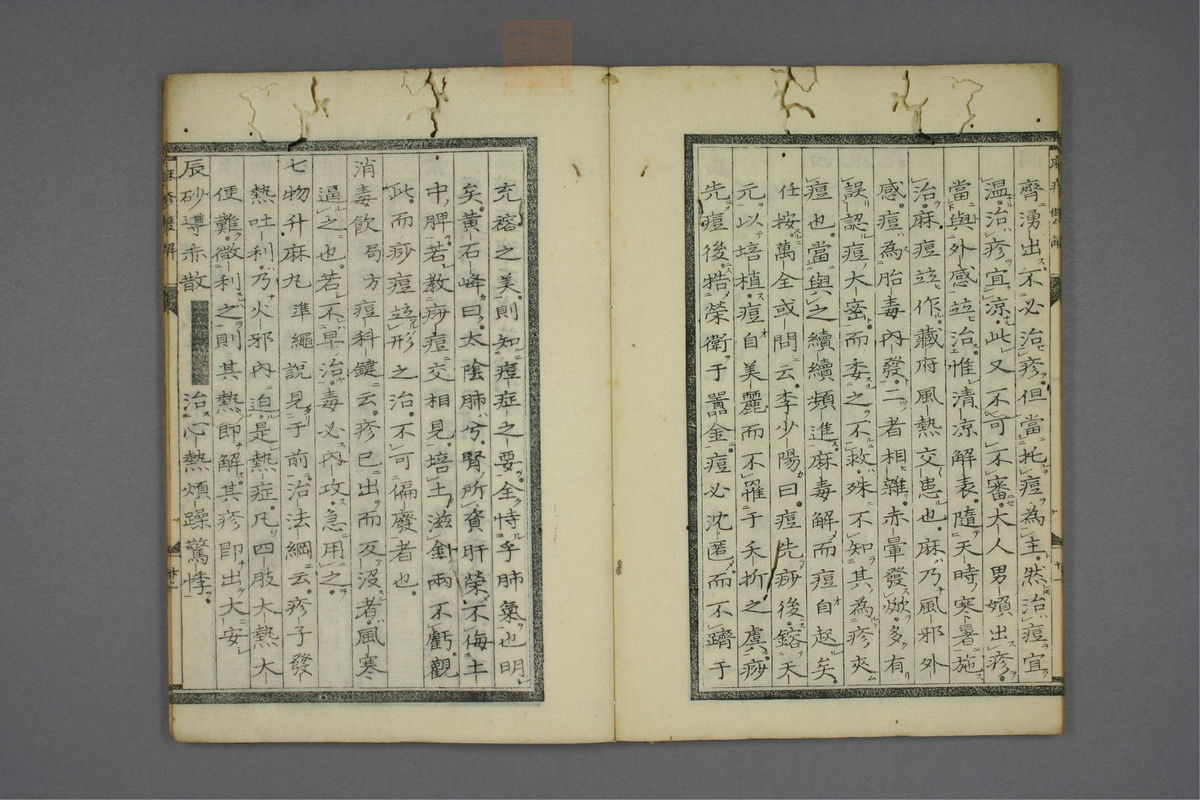 齊湧出不必治疹但當托痘為主然治痘宜
温治疹宜凉此又不可不審大人男婦出疹
當與外感竝治惟清凉解表隨天時寒暑施
治麻痘竝作藏府風熱交患也麻乃風邪外
感痘為胎毒内發二者相雜赤暈發焮多有
誤認痘大密而委之不救殊不知其為疹夾
痘也當與之續續頻進麻毒解而痘自起矣
任按萬全或問云李少陽曰痘先痧後鎔天
元以培植痘自美麗而不罹于夭折之虞痧
先痘後牿榮衛于嚚金痘必沈匿而不躋于
充裕之美則知痘症之要全恃乎肺氣也明
矣黃石峰曰太陰肺兮腎所資肝榮不侮土
中脾若教痧痘交相見培土滋金兩不虧觀
此而痧痘竝形之治不可偏廢者也
消毒飲 局方 痘科鍵云疹已出而反沒者風寒
逼之也若不早治毒必内攻急用之
七物升麻丸 準繩說見于前治法綱云疹子發
熱吐利乃火邪内迫是熱症凡四肢大熱大
便難微利之則其熱即解其疹即出大安
辰砂導赤散 治心熱煩躁驚悸